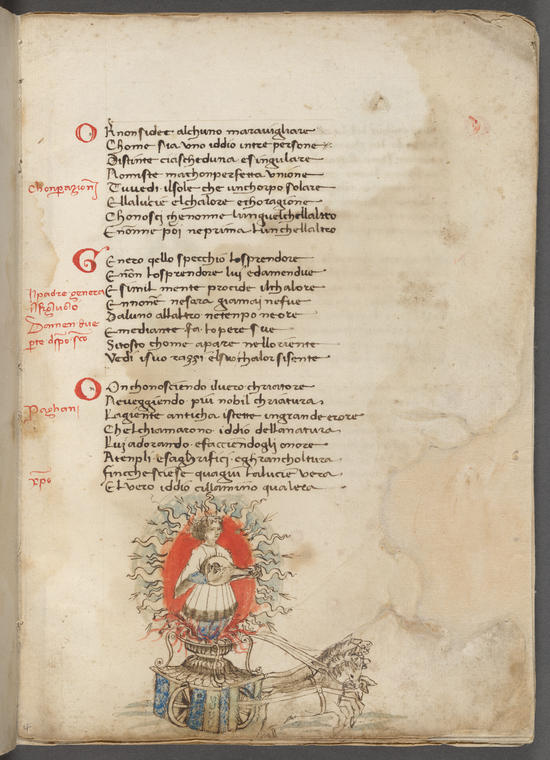 OR non si dee alchuno maravigliare
Chome sia uno iddio in tre persone
Distinte ciascheduna e singulare
chonparazioni
Tu vedi il sole che un chorpo solare
E lla lucie el chalore e tho ragione
Chonosci che non ne l un quel chell altro
E non ne poi ne prima l un chell altro
GEnero qello specchio lo sprendore
E non lo sprendore lui ed amendue
E simil mente procide il chalore
il padre genera
il figluolo
E non ne ne sara giamai ne fue
Dal uno all altro ne tenpo ne ore
Damen due
E mediante fa l opere sue
Si tosto chome apare nell oriente
Vedi i suo razzi el suo chalor si sente
NOn chonosciendo il vero chriatore
Ne veggiendo piu nobil chriatura
paghani
La giente anticha istette in grande erore
Che l chiamarono iddio della natura
Lui adorando e facciendogli onore
A tenpli e saghrifici e gh gran choltura
xpo
fin che sciese qua qui la lucie vera
El vero iddio ci llamino qual era